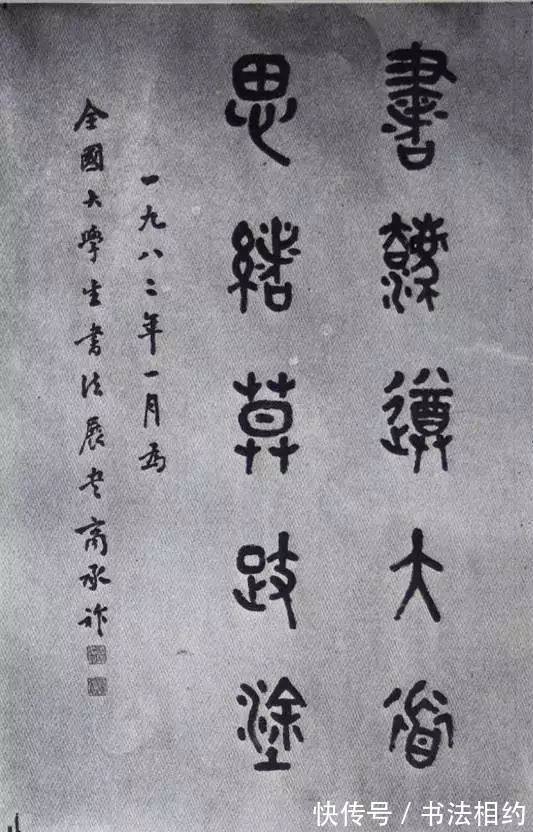 書遵大道
思緒莫跂塗
一九八二年一月為
全國大學生書法展書商承祚
快传号 / 书法相约